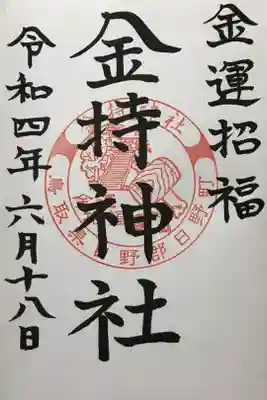 金運招福
金持神社
令和四年六月十八日
鳥取県日野郡日野町